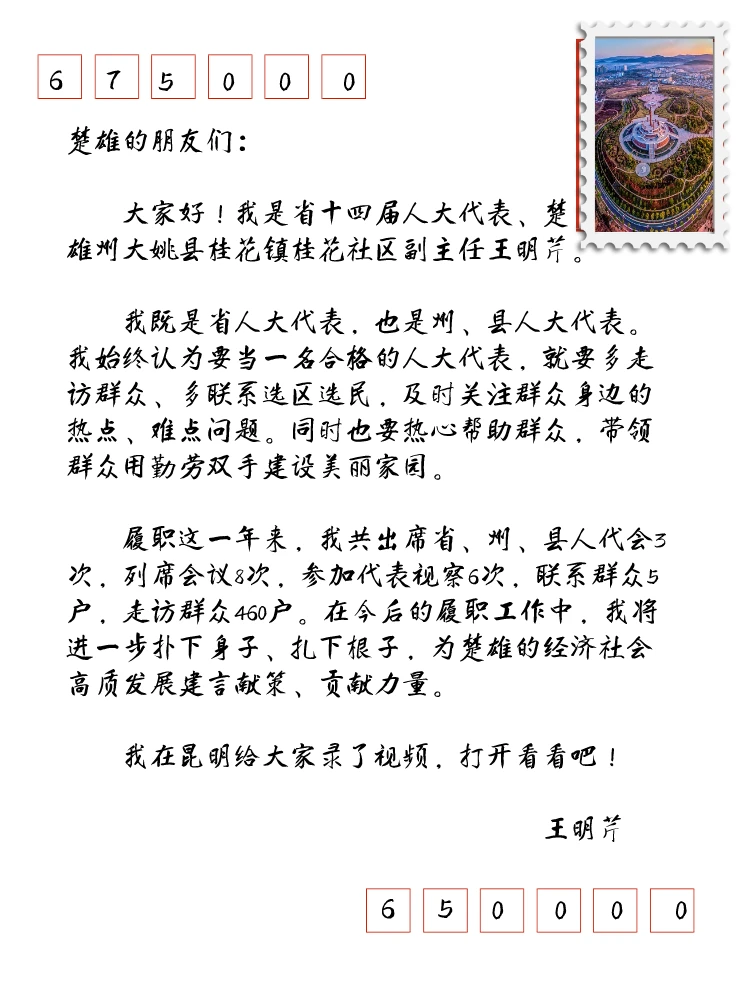 675000
楚雄的朋友们：
大家好！我是省十四届人大代表、楚
雄州大姚县桂花镇桂花社区副主任王明芹。
我既是省人大代表，也是州、县人大代表。
我始终认为要当一名合格的人大代表，就要多走
访群众、多联系选区选民，及时关注群众身边的
热点、难点问题。同时也要热心帮助群众，带领
群众用勤劳双手建设美丽家园。
履职这一年来，我共出席省、州、县人代会3
次，列席会议8次，参加代表视察6次，联系群众5
户，走访群众460户。在今后的履职工作中，我将
进一步扑下身子、扎下根子，为楚雄的经济社会
高质发展建言献策、贡献力量。
我在昆明给大家录了视频，打开看看吧！
王明芹
650000